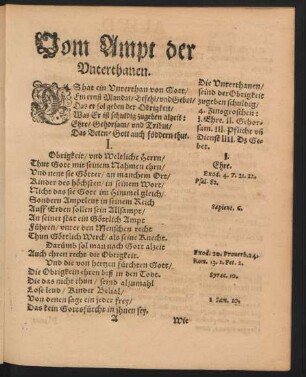 Vom Ampt der
Vnterthanen.
ES hat ein Vnterthan von Gott/
Ein ernst Mandat/ Befehl/ und Gebot/
Das er sol geben der Obrigkeit/
Was Er ist schuldig zugeben alzeit:
Ehre/ Gehorsam/ und Tribut/
Das Beten/ Gott auch foddern thut.
I.
Obrigkeit/ und Weltliche Herren/
Thut Gott mit seinem Nahmen ehrn/
Und nent sie Götter/ an manchem Ort/
Kinder des höchsten/ in seinem Wort/
Nicht das sie Gott im Himmel gleich/
Sondern Ampleut in seinem Reich
Auff Erden sollen sein Allsampt/
An seiner stat ein Göttlich Ampt
Führen/ unter den Menschen recht
Thun Göttlich Werck/ als seine Knecht.
Darümb sol man nach Gott alzeit
Auch ehren recht die Obrigkeit.
Und die von hertzen fürchten Gott/
Die Obrigkeit ehren biß in den Todt.
Die das nicht thun/ seind alzumahl
Lose leud/ Kinder Belial/
Von denen sage ein jeder frey/
Das kein Gottsfürcht in ihnen sey.
A Wie
Die Vnterthanen/
seind der Obrigkeit
zugeben schuldig/
4. Zinsgroschen:
1. Ehre. II. Gehor-
sam. III. Pflicht uñ
Dienst IIII. Ds Ge-
bet.
I.
Ehre.
Exod. 4. 7. 21. 22.
Psal. 82.
Sapient. 6.
Exod. 20. Proverb. 24.
Rom. 13. 1. Pet. 2.
Syrac. 10.
1 Sam. 10.